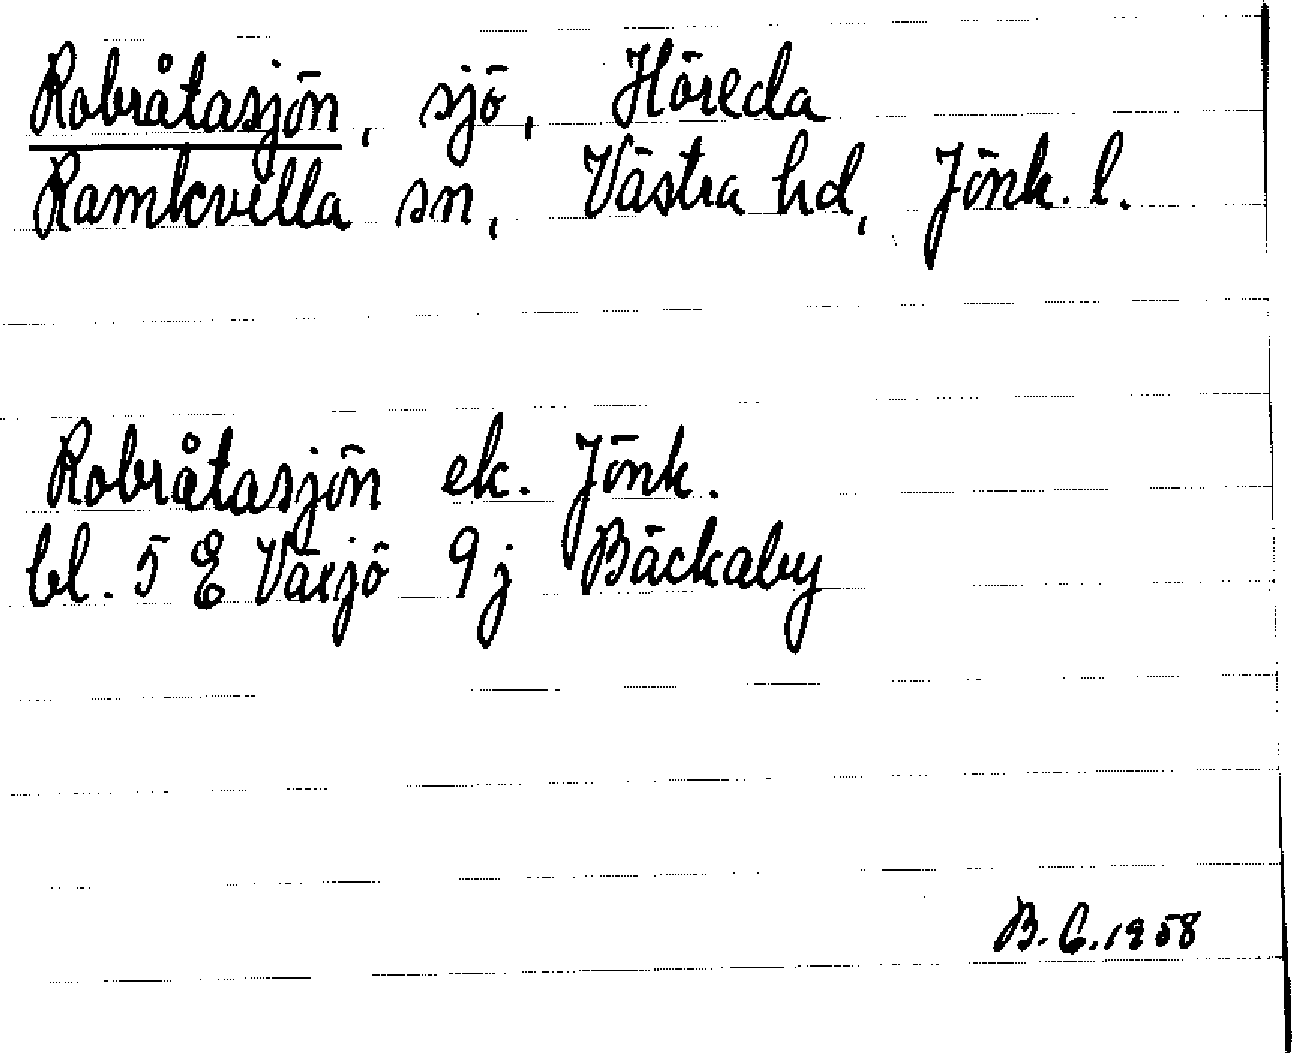 Robråtasjön, sjö, Höreda
Ramkvilla sn, Västra hd, Jönk. l.
Robråtasjön ek. Jönk.
bl. 5 E Växjö 9j Bäckaby
B. G. 1958